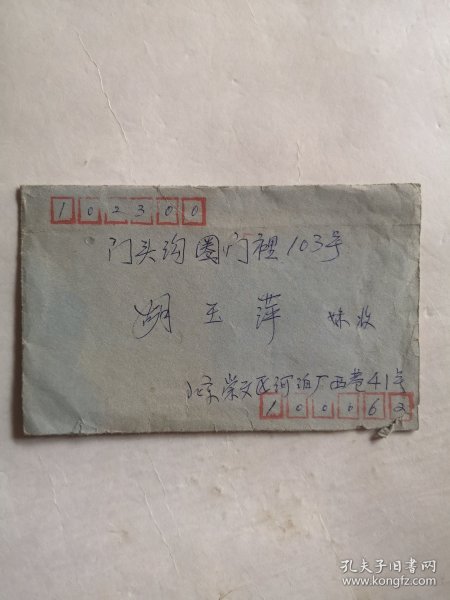 102300
门头沟圈门裡103号
胡玉萍 妹收
北京崇文区河泊厂西巷41号
100062
孔夫子旧书网
www.kongfz.com